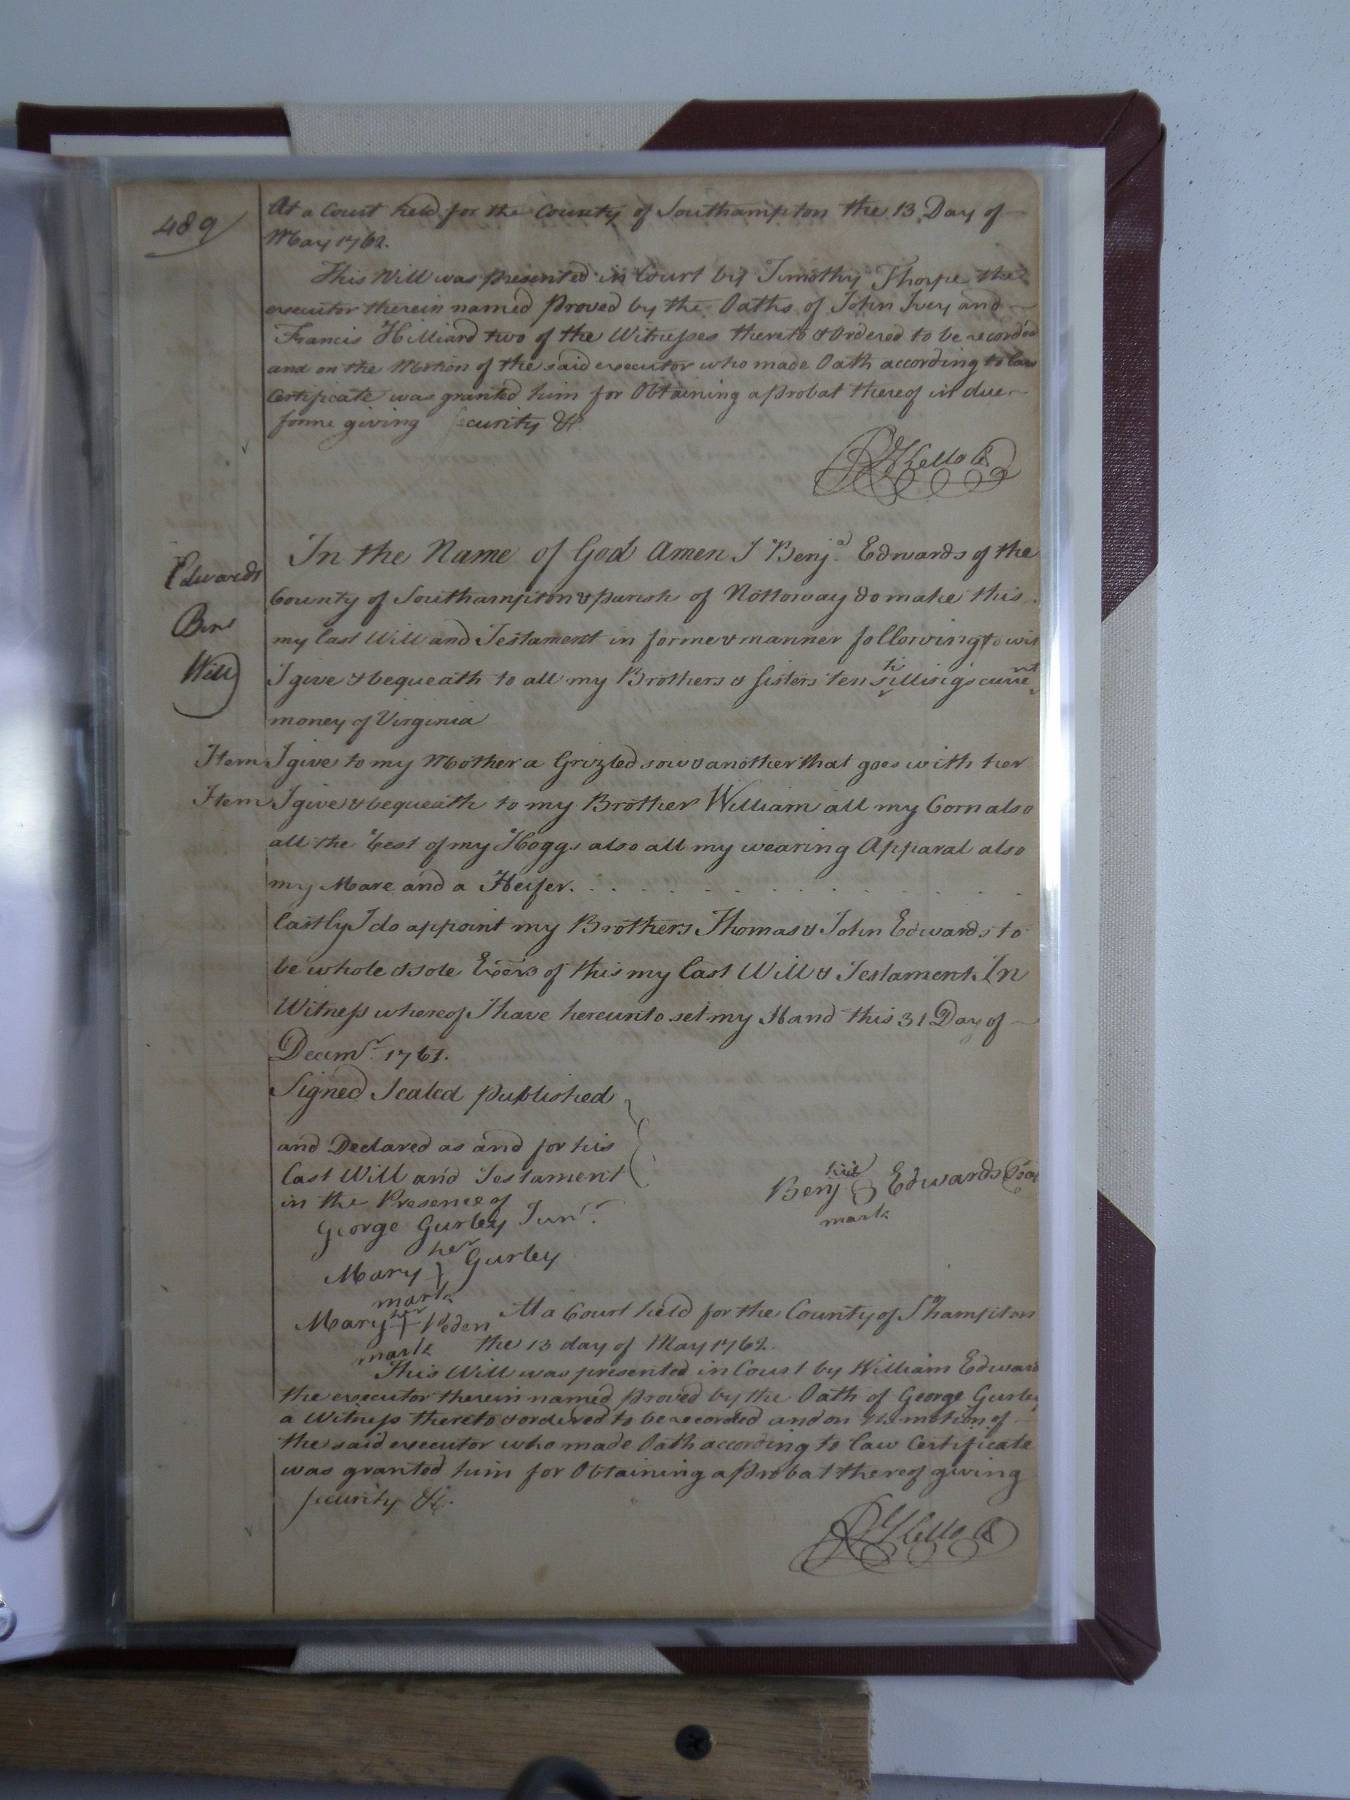 489
At a Court held for the County of Southampton the 13 Day of
May 1762.
This Will was presented in Court by Timothy Thorpe the
executor therein named proved by the Oaths of John Ivey and
Francis Hilliard two of the Witnesses thereto & Ordered to be recorded
and on the Motion of the said executor who made Oath according to law
Certificate was granted him for Obtaining a probat thereof in due
forme giving security &c
R Kello Ck
Edwards
Benj
Will
In the Name of God Amen I Benja. Edwards of the
County of Southampton & parish of Nottoway do make this
my last Will and Testament in forme & manner following to wit
I give & bequeath to all my Brothers & Sisters ten shillings curre nt
money of Virginia
Item I give to my Mother a Grizled sow & another that goes with her
Item I give & bequeath to my Brother William all my Corn also
all the rest of my Hoggs also all my wearing Apparal also
my Mare and a Heifer.
Lastly I do appoint my Brothers Thomas & John Edwards to
be whole & sole Exōrs of this my last Will & Testament. In
Witness whereof I have hereunto set my Hand this 31 Day of
Decemr. 1761.
Signed Sealed published
and Declared as and for his
Last Will and Testament
in the Presence of
his
Benj Edwards Seal
mark
George Gurley Junr.
her
Mary Gurley
mark
her
Mary
mark
At a Court held for the County of Shampton
the 13 day of May 1762.
This Will was presented in Court by William Edwards
the executor therein named proved by the Oath of George Gurley
a Witness thereto & ordered to be recorded and on the motion of
the said executor who made Oath according to Law Certificate
was granted him for Obtaining a probat thereof giving
security &c.
R Kello Ck